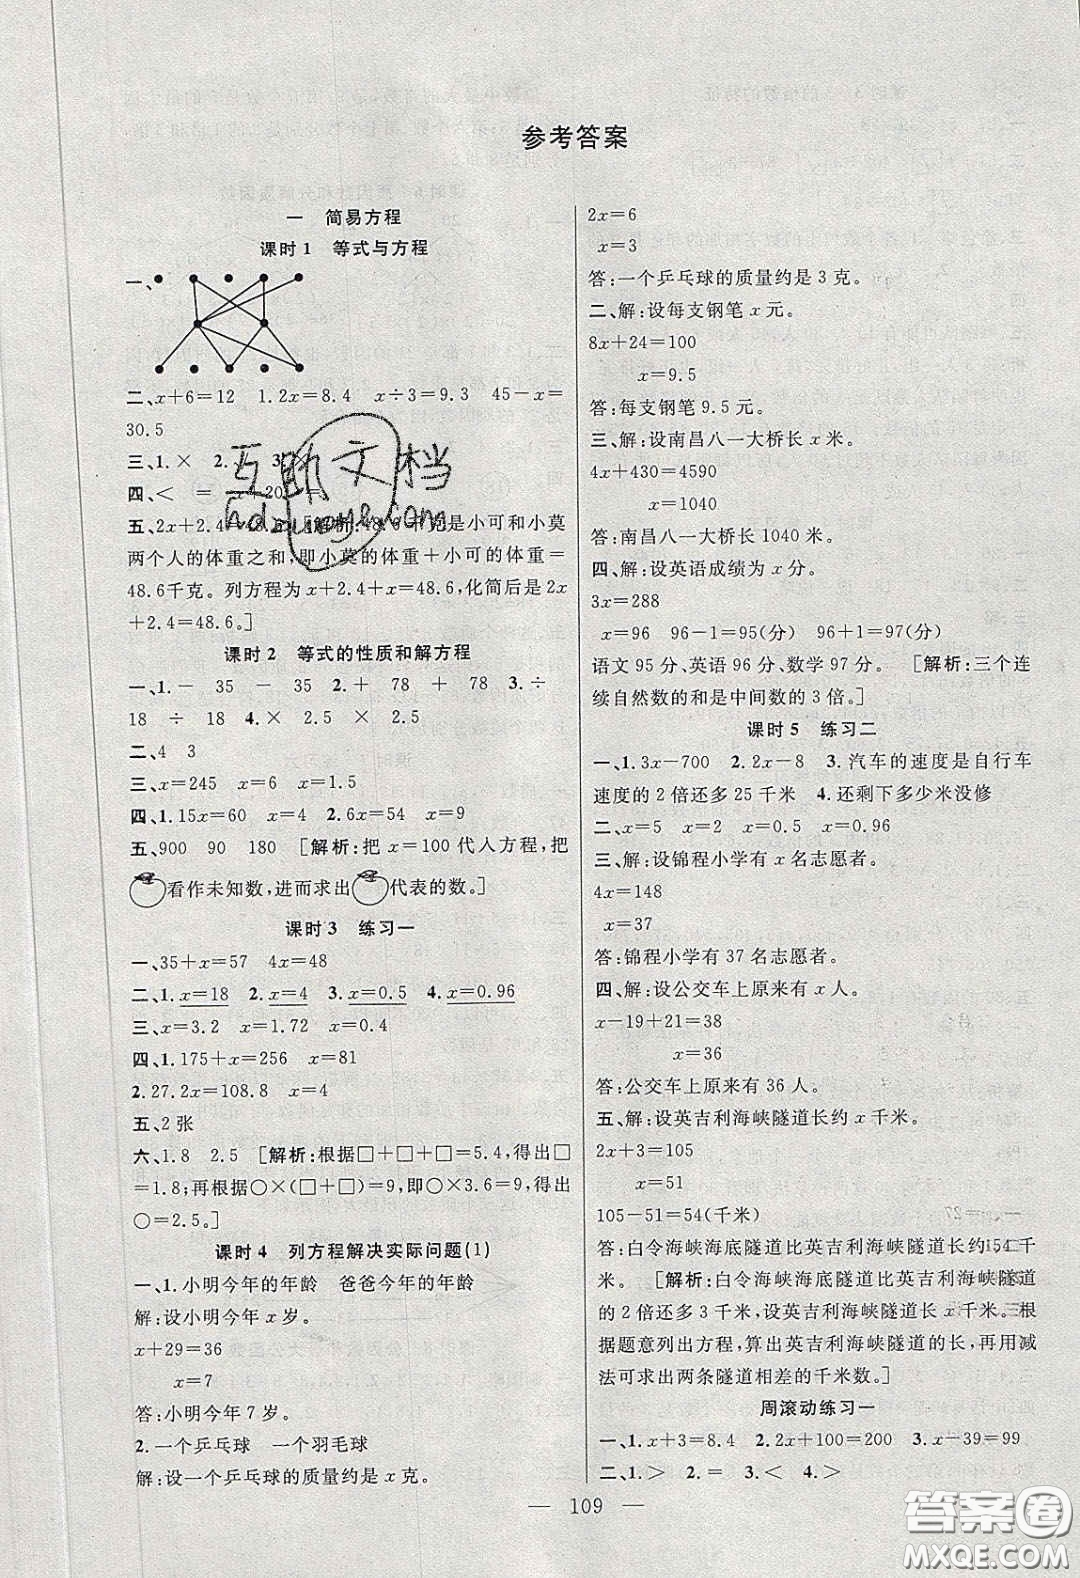 参考答案
一　简易方程
课时1　等式与方程
一、
二、x+6=12　1.2x=8.4　x÷3=9.3　45-x=
30.5
三、1.×　2.　3.×
四、<　=　x+20　=
五、2x+2.4=48.6　[解析:48.6千克是小可和小莫
两个人的体重之和,即小莫的体重+小可的体重=
48.6千克。列方程为x+2.4+x=48.6,化简后是2x
+2.4=48.6。]
课时2　等式的性质和解方程
一、1.-　35　-　35　2.+　78　+　78　3.÷
18　÷　18　4.×　2.5　×　2.5
二、4　3
三、x=245　x=6　x=3.5
四、1.15x=60　x=4　2.6x=54　x=9
五、900　90　180　[解析:把x=100代人方程,把
看作未知数,进而求出　代表的数。]
课时3　练习一
一、35+x=57　4x=48
二、1.x=18　2.x=4　3.x=0.5　4.x=0.96
三、x=3.2　x=1.72　x=0.4
四、1.175+x=256　x=81
2.27.2x=108.8　x=4
五、2张
六、1.8　2.5　[解析:根据□+□+□=5.4,得出□
=1.8;再根据○×(□+□)=9,即○×3.6=9,得出
○=2.5。]
课时4　列方程解决实际问题(1)
一、1.小明今年的年龄　爸爸今年的年龄
解:设小明今年x岁。
x+29=36
x=7
答:小明今年7岁。
2.一个乒乓球　一个羽毛球
解:设一个乒乓球的质量约是x克。
2x=6
x=3
答:一个乒乓球的质量约是3克。
二、解:设每支钢笔x元。
8x+24=100
x=9.5
答:每支钢笔9.5元。
三、解:设南昌八一大桥长x米。
4x+430=4590
x=1040
答:南昌八一大桥长1040米。
四、解:设英语成绩为x分。
3x=288
x=96　96-1=95(分)　96+1=97(分)
语文95分、英语96分、数学97分。　[解析:三个连
续自然数的和是中间数的3倍。]
课时5　练习二
一、1.3x-700　2.2x-8　3.汽车的速度是自行车
速度的2倍还多25千米　4.还剩下多少米没修
二、x=5　x=2　x=0.5　x=0.96
三、解:设锦程小学有x名志愿者。
4x=148
x=37
答:锦程小学有37名志愿者。
四、解:设公交车上原来有x人。
x-19+21=38
x=36
答:公交车上原来有36人。
五、解:设英吉利海峡隧道长约x千米。
2x+3=105
x=51
105-51=54(千米)
答:白令海峡海底隧道比英吉利海峡隧道长约54千
米。　[解析:白令海峡海底隧道比英吉利海峡隧道
的2倍还多3千米,设英吉利海峡隧道长x千米。根
据题意列出方程,算出英吉利海峡隧道的长,再用减
法可求出两条隧道相差的千米数。]
周滚动练习一
一、1.x+3=8.4　2.2x+100=200　3.x-39=99
二、1.>　2.=　3.<　4.>
— 109 —
互助文档
答案圈
MXQE.COM